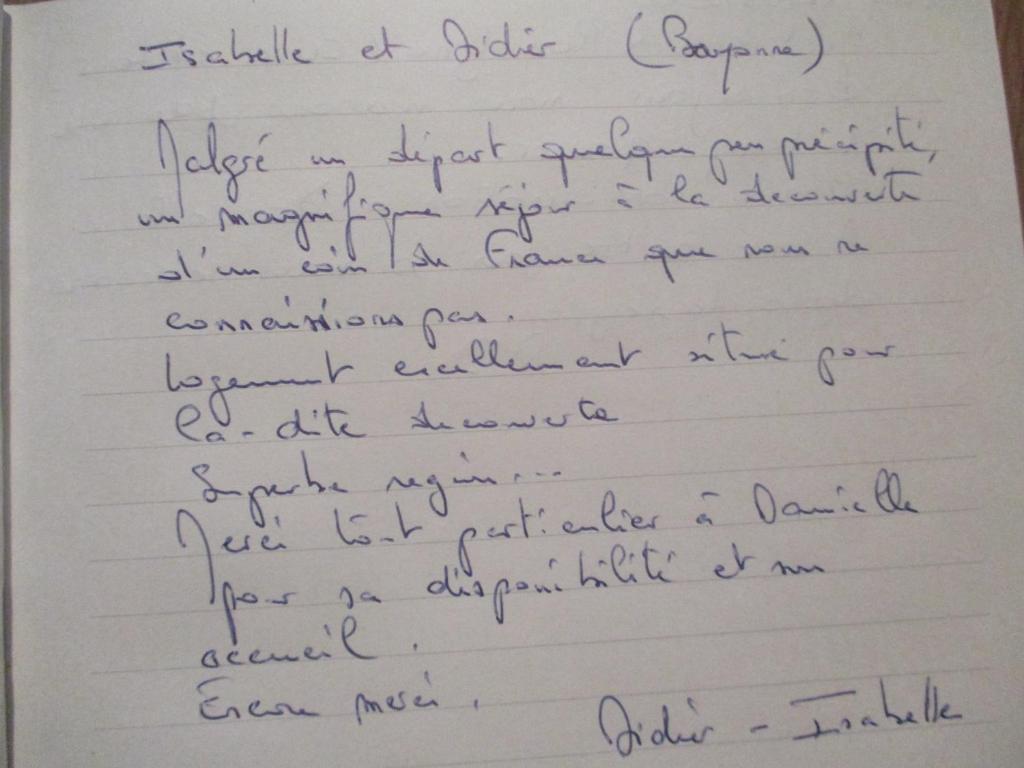 Isabelle et Didier (Bayonne)
Malgré un départ quelque peu précipité,
un magnifique séjour à la decouverte
d'un coin de France que nous ne
connaissions pas.
Logement excellement situé pour
la-dite decouverte
Superbe region...
Merci tout particulier à Danielle
pour sa disponibilité et son
accueil.
Encore merci.
Didier - Isabelle